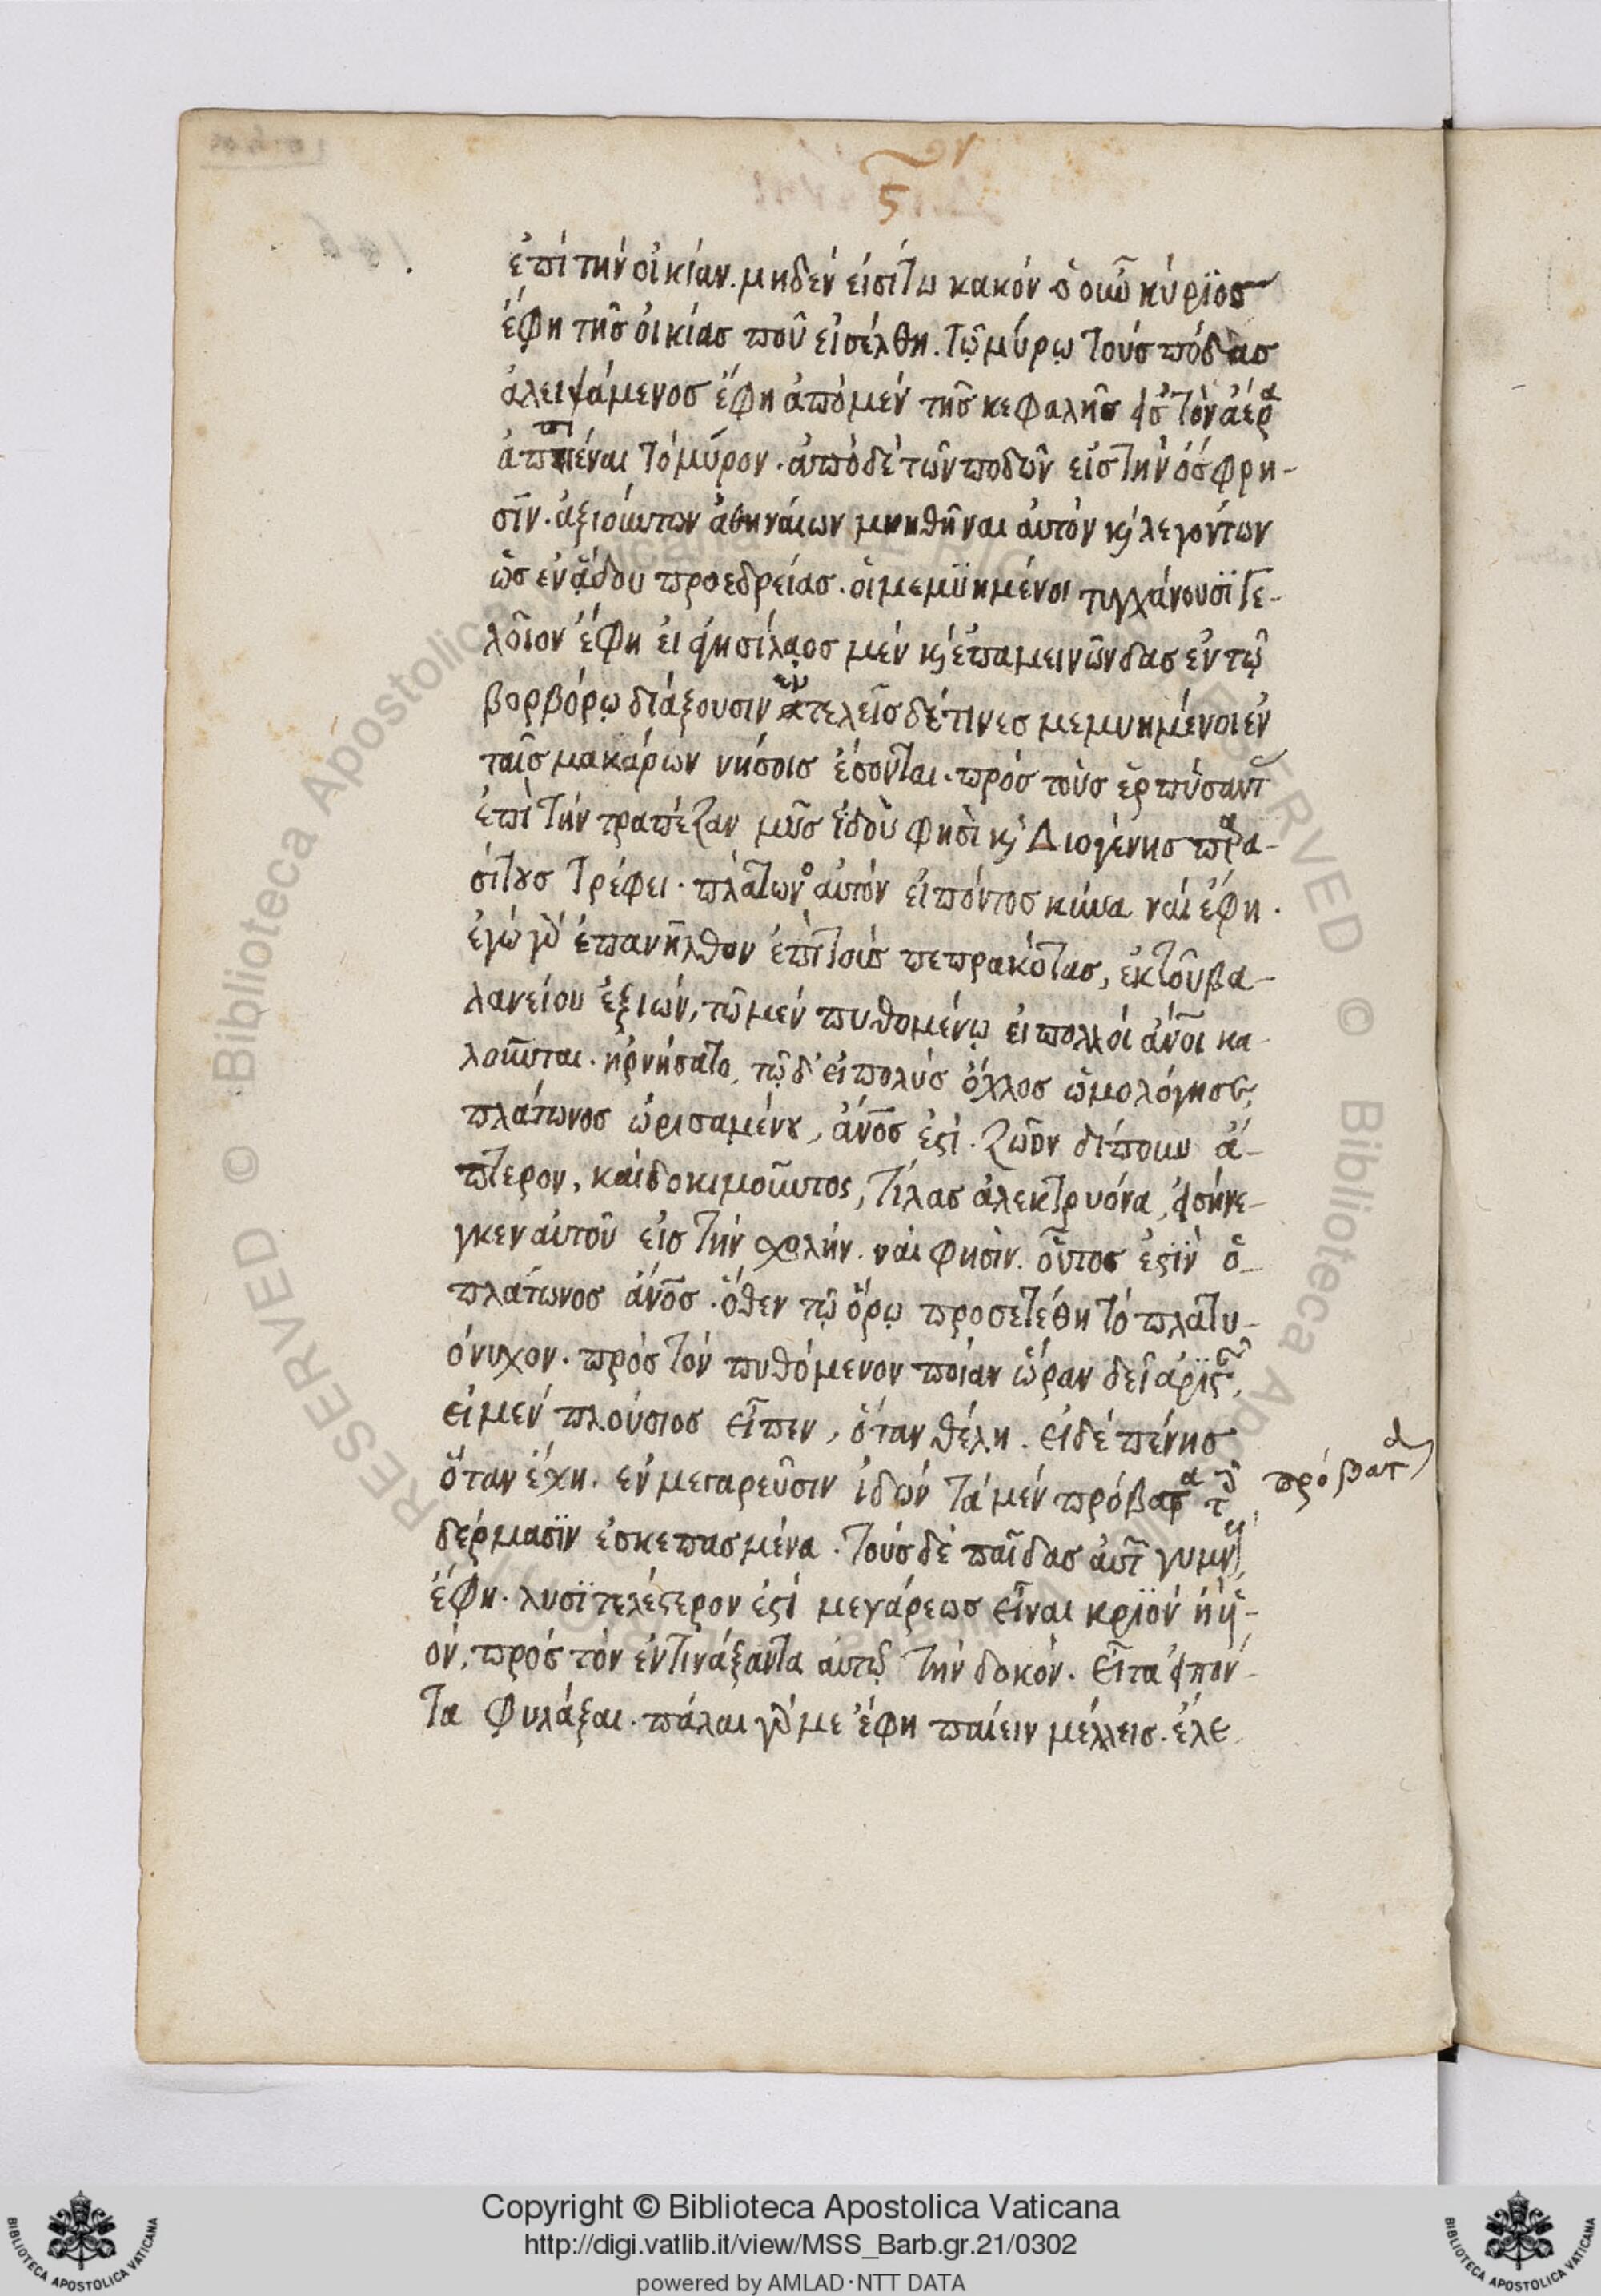 ἐπὶ τὴν οἰκίαν. μηδὲν εἰσίτω κακόν ὁ οὖν κύριος
ἔφη τῆς οἰκίας ποῦ εἰσέλθη. τῷ μύρῳ τοὺς πόδας
ἀλειψάμενος ἔφη ἀπὸ μὲν τῆς κεφαλῆς εἰς τὸν ἀέρα
ἀπιέναι τὸ μύρον. ἀπὸ δὲ τῶν ποδῶν εἰς τὴν ὄσφρη-
σιν. ἀξιούντων ἀθηναίων μυηθῆναι αὐτὸν κ λεγόντων
ὡς ἐν ᾅδου προεδρείας. οἱ μεμϋημένοι τυγχάνουσϊ γε-
λοῖον ἔφη εἰ ἀγησίλαος μὲν κ ἐπαμεινῶνδας ἐν τῷ
βορβόρῳ διάξουσιν εὐτελεῖς δέ τινες μεμυημένοι ἐν
ταῖς μακάρων νήσοις ἔσονται. πρὸς τοὺς ἑρπύσαντ
ἐπὶ τὴν τράπεζαν μῦς ἰδοὺ φησὶ κ Διογένης παρα-
σίτους τρέφει. πλάτωνος αὐτὸν εἰπόντος κύνα ναὶ ἔφη.
ἐγὼ γὰρ ἐπανῆλθον ἐπὶ τοὺς πεπρακότας, ἐκ τοῦ βα-
λανείου ἐξιών, τῷ μὲν πυθομένῳ εἰ πολλοὶ ἄνοι κα-
λοῦνται. ἠρνήσατο, τῷ δ' εἰ πολὺς ὄχλος ὡμολόγησε,
πλάτωνος ὁρισαμένου, ἄνος ἐστὶ. ζῶον δίπουν ἄ-
πτερον, καὶ δοκιμοῦντος, τίλας ἀλεκτρυόνα, εἰσήνε-
γκεν αὐτοῦ εἰς τὴν σχολήν. ναὶ φησὶν. οὗτος ἐστϊν ὁ
πλάτωνος ἄνος. ὅθεν τῷ ὅρῳ προσετέθη τὸ πλατυ-
όνυχον. πρὸς τὸν πυθόμενον ποίαν ὥραν δεῖ ἀρϊστᾶν,
εἰ μὲν πλούσιος εἶπεν, ὅταν θέλη. εἰ δὲ πένης
ὅταν ἔχη. ἐν μεγαρεῦσιν ἰδὼν τὰ μὲν πρόβατα τοῖς
προβατ
δέρμασϊν ἐσκεπασμένα. τοὺς δὲ παῖδας αὐτ γυμνοὺς,
ἔφη. λυσϊτελέστερον ἐστὶ μεγάρεως εἶναι κρϊὸν ἢ ὑϊ-
όν, πρὸς τὸν ἐντινάξαντα αὐτῷ τὴν δοκόν. εἶτα εἰπόν-
τα φυλάξαι. πάλαι γὰρ με ἔφη παίειν μέλλεις. ἔλε
Copyright © Biblioteca Apostolica Vaticana
http://digi.vatlib.it/view/MSS_Barb.gr.21/0302
powered by AMLAD·NTT DATA